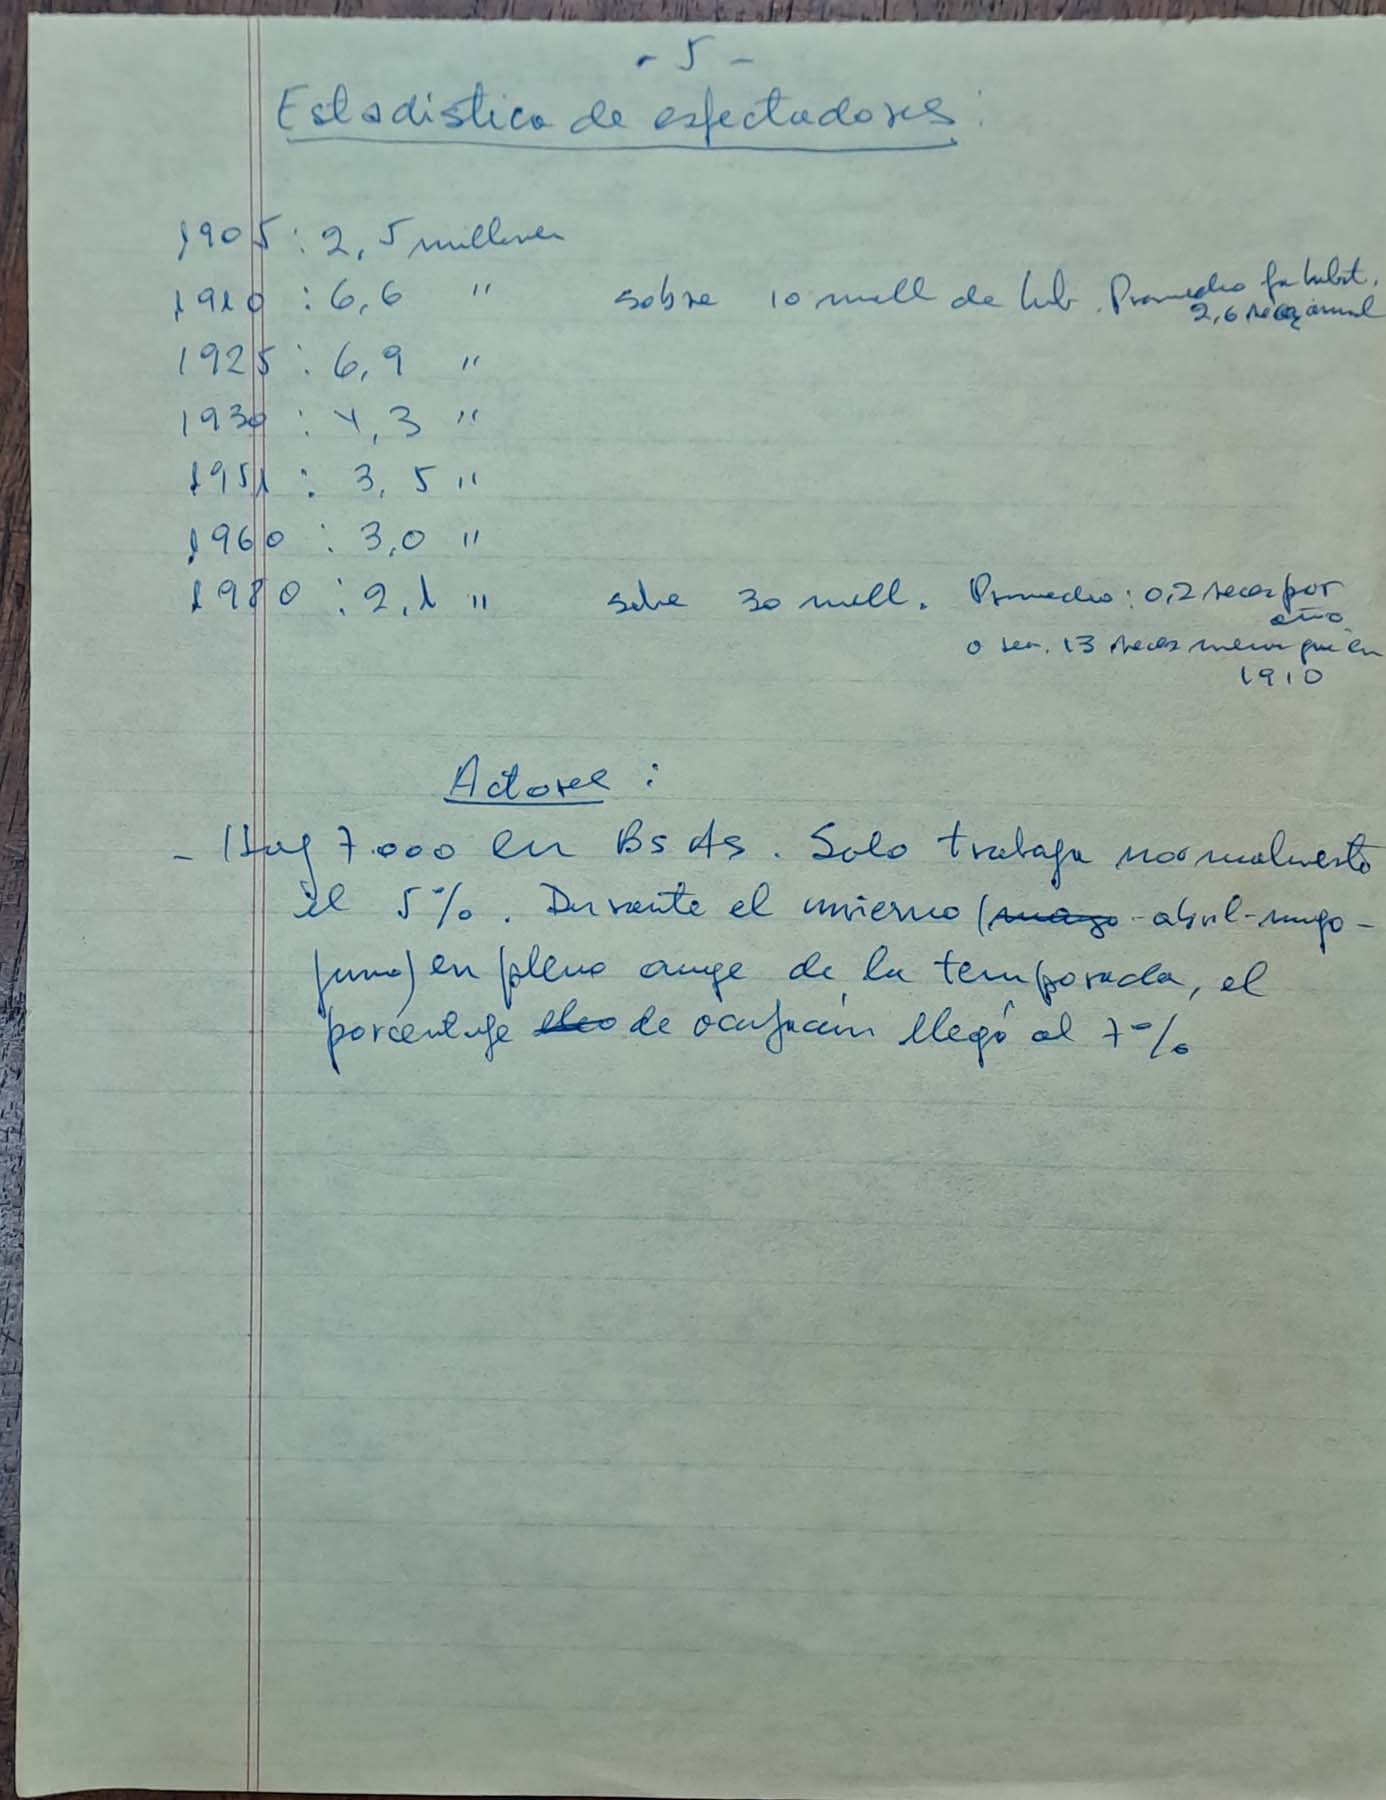 - 5 -
Estadistica de espectadores:
1905 : 2,5 millones
1910 : 6,6 " sobre 10 mill de hab. Promedio por habit.
2,6 veces anual
1925 : 6,9 "
1930 : 4,3 "
1951 : 3,5 "
1960 : 3,0 "
1980 : 2,1 " sobre 30 mill. Promedio: 0,2 veces por
año
o sea. 13 veces menos que en
1910
Actores :
- Hay 7.000 en Bs As. Solo trabaja normalmente
el 5%. Durante el invierno ( - abril - mayo -
junio) en pleno auge de la temporada, el
porcentaje de ocupación llegó al 7%